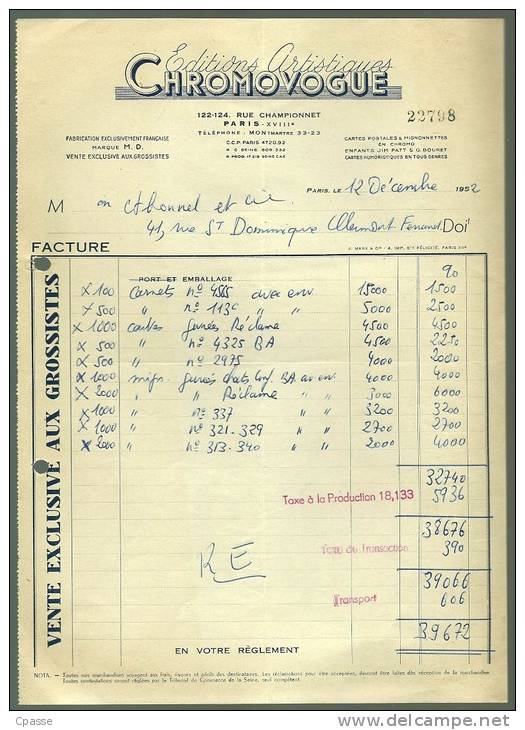 Editions Artistiques
CHROMOVOGUE
122-124, RUE CHAMPIONNET
PARIS-XVIIIe
TÉLÉPHONE: MONTMARTRE 33-23
C.C.P. PARIS 4720.92
22798
FABRICATION EXCLUSIVEMENT FRANÇAISE
MARQUE M. D.
VENTE EXCLUSIVE AUX GROSSISTES
CARTES POSTALES & MIGNONNETTES
EN CHROMO
ENFANTS JIM PATT & G. BOURET
CARTES HUMORISTIQUES EN TOUS GENRES
PARIS, LE 12 Décembre 1952
M on et cie
41, rue St Dominique Clermont Ferrand Doit
FACTURE
VENTE EXCLUSIVE AUX GROSSISTES
PORT ET EMBALLAGE 90
x 100 Carnets no 4565 avec env. 15000 1500
x 500 " no 113c " " 5000 2500
x 1000 cartes Réclame 4500 4500
x 500 " no 4325 BA 4500 2250
x 500 " no 2975 4000 2000
x 1000 mign. BA av env 4000 4000
x 2000 " Réclame " " 3000 6000
x 1000 " no 337 " " 3200 3200
x 1000 " no 321-329 " " 2700 2700
x 2000 " no 313-340 " " 2000 4000
32740
Taxe à la Production 18,133 5936
38676
Taxe de Transaction 390
RE
39066
Transport 606
39672
EN VOTRE RÈGLEMENT
NOTA. — Toutes nos marchandises voyagent aux frais, risques et périls des destinataires. Les réclamations pour être acceptées, devront être faites dès réception de la marchandise
Toutes contestations seront réglées par le Tribunal de Commerce de la Seine, seul compétent.
Cpasse
delcampe.net